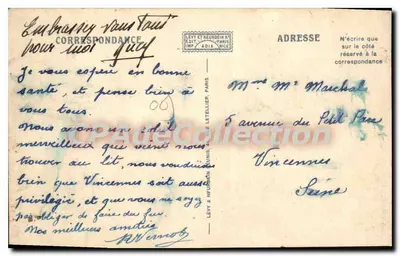 Embrassez vous tous
pour moi
CORRESPONDANCE
Je vous espère en bonne
santé, et pense bien à
vous tous.
Nous avons un soleil
merveilleux qui vient nous
trouver au lit, nous voudrions
bien que Vincennes soit aussi
privilégié, et que vous ne soyez
pas obligés de faire du feu
Nos meilleurs amitiés
LEVY ET NEURDEIN RÉUNIS
ADRESSE
N'écrire que
sur le côté
réservé à la
correspondance
Mme Mr Marchal
5 avenue du Petit Parc
Vincennes
Seine
www.delcampe.net